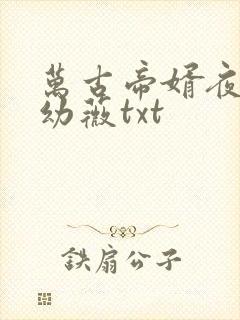 萬古帝婿夜
幼薇txt
鉄扇公子